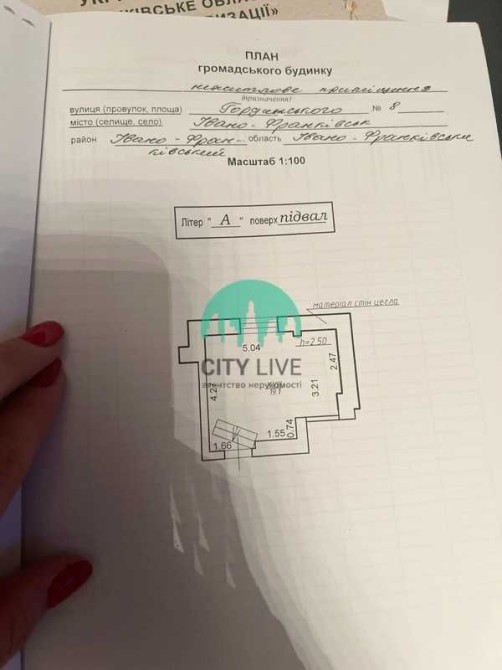 КІВСЬКЕ ОБЛА
ИЗАЦІЇ»
ПЛАН
громадського будинку
нежитлове приміщення
/призначення/
вулиця (провулок, площа) Гординського № 8
місто (селище, село) Івано-Франківськ
район Івано-Фран- область Івано-Франківськ
ківський
Масштаб 1:100
Літер " А " поверх підвал
матеріал стін цегла
5.04
h=2.50
2.47
CITY LIVE
агентство нерухомості
19.1
3.21
0.74
1.55
1.66